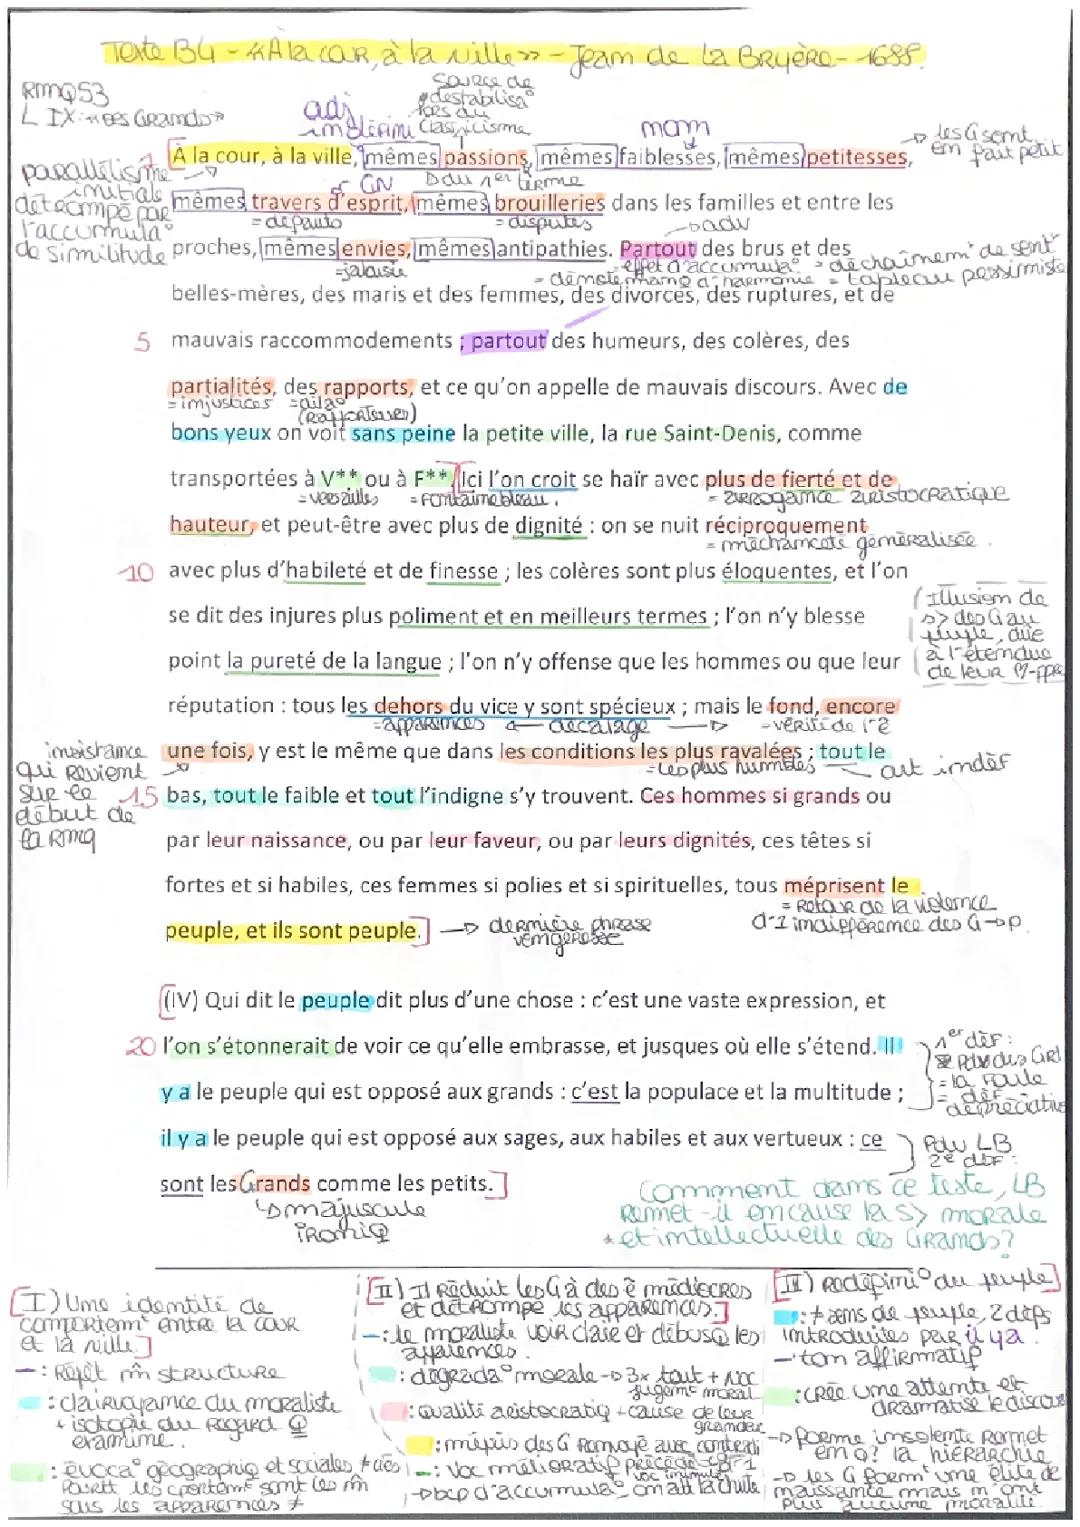 Texte B4 - «À la cour, à la ville» - Jean de La Bruyère - 1688.
RMQ 53
L IX : «Des Grands»
adj indéfini
source de
déstabilisa°
lors du
classicisme
nom
les G sont
en fait petit
parallélisme
initial
détrompé par
l'accumula°
de similitude
À la cour, à la ville, mêmes passions, mêmes faiblesses, mêmes petitesses,
GN
du 1er terme
mêmes travers d'esprit, mêmes brouilleries dans les familles et entre les
= défauts
= disputes
adv
proches, mêmes envies, mêmes antipathies. Partout des brus et des
= jalousie
effet d'accumula° = déchaînemt de sentt
= tableau pessimiste
belles-mères, des maris et des femmes, des divorces, des ruptures, et de
5 mauvais raccommodements ; partout des humeurs, des colères, des
partialités, des rapports, et ce qu'on appelle de mauvais discours. Avec de
= injustices
(rapporteur)
bons yeux on voit sans peine la petite ville, la rue Saint-Denis, comme
transportées à V** ou à F** [Ici l'on croit se haïr avec plus de fierté et de
= Versailles = Fontainebleau.
= arrogance aristocratique
hauteur, et peut-être avec plus de dignité : on se nuit réciproquement
= méchanceté généralisée.
10 avec plus d'habileté et de finesse ; les colères sont plus éloquentes, et l'on
se dit des injures plus poliment et en meilleurs termes ; l'on n'y blesse
point la pureté de la langue ; l'on n'y offense que les hommes ou que leur
Illusion de
s> des G au
peuple, due
à l'étendue
de leur
réputation : tous les dehors du vice y sont spécieux ; mais le fond, encore
= apparences ← décalage → = vérité de l'ê
insistance
qui revient
sur le
début de
la RMQ
une fois, y est le même que dans les conditions les plus ravalées ; tout le
= les plus humbles
art indéf
15 bas, tout le faible et tout l'indigne s'y trouvent. Ces hommes si grands ou
par leur naissance, ou par leur faveur, ou par leurs dignités, ces têtes si
fortes et si habiles, ces femmes si polies et si spirituelles, tous méprisent le
= retour de la violence
d'1 indifférence des G → p.
peuple, et ils sont peuple.] → dernière phrase
vengeresse
[(IV) Qui dit le peuple dit plus d'une chose : c'est une vaste expression, et
20 l'on s'étonnerait de voir ce qu'elle embrasse, et jusques où elle s'étend. Il
y a le peuple qui est opposé aux grands : c'est la populace et la multitude ;
1er déf :
Pdv des Grd
= la foule
= déf
dépréciative
il y a le peuple qui est opposé aux sages, aux habiles et aux vertueux : ce
Pdv LB
2e déf :
sont les Grands comme les petits.]
majuscule
ironiq
Comment dans ce texte, LB
remet-il en cause la s> morale
et intellectuelle des Grands ?
[I) Une identité de
comportemt entre la cour
et la ville.]
— : Répét m̂ structure
: clairvoyance du moraliste
+ isotopie du regard Q
examine.
: évoca° géographiq et sociales ≠ cies
sous les apparences ≠
[II) Il réduit les G à des ê médiocres
et détrompe les apparences.]
— : le moraliste voir clair et débusq les
apparences.
: dégrada° morale → 3x tout + voc
jugemt moral
: Qualité aristocratiq + cause de leur
grandeur
: mépris des G renvoyé
— : Voc mélioratif précédé
→ bcp d'accumula° on att la chute
[III) Redéfini° du peuple]
: ≠ sens de peuple, 2 défs
introduites par il y a.
— ton affirmatif
: crée une attente et
dramatise le discours
→ forme insolente remet
en Q ? la hiérarchie
→ les G formt une élite de
naissance mais n'ont
plus aucune moralité.